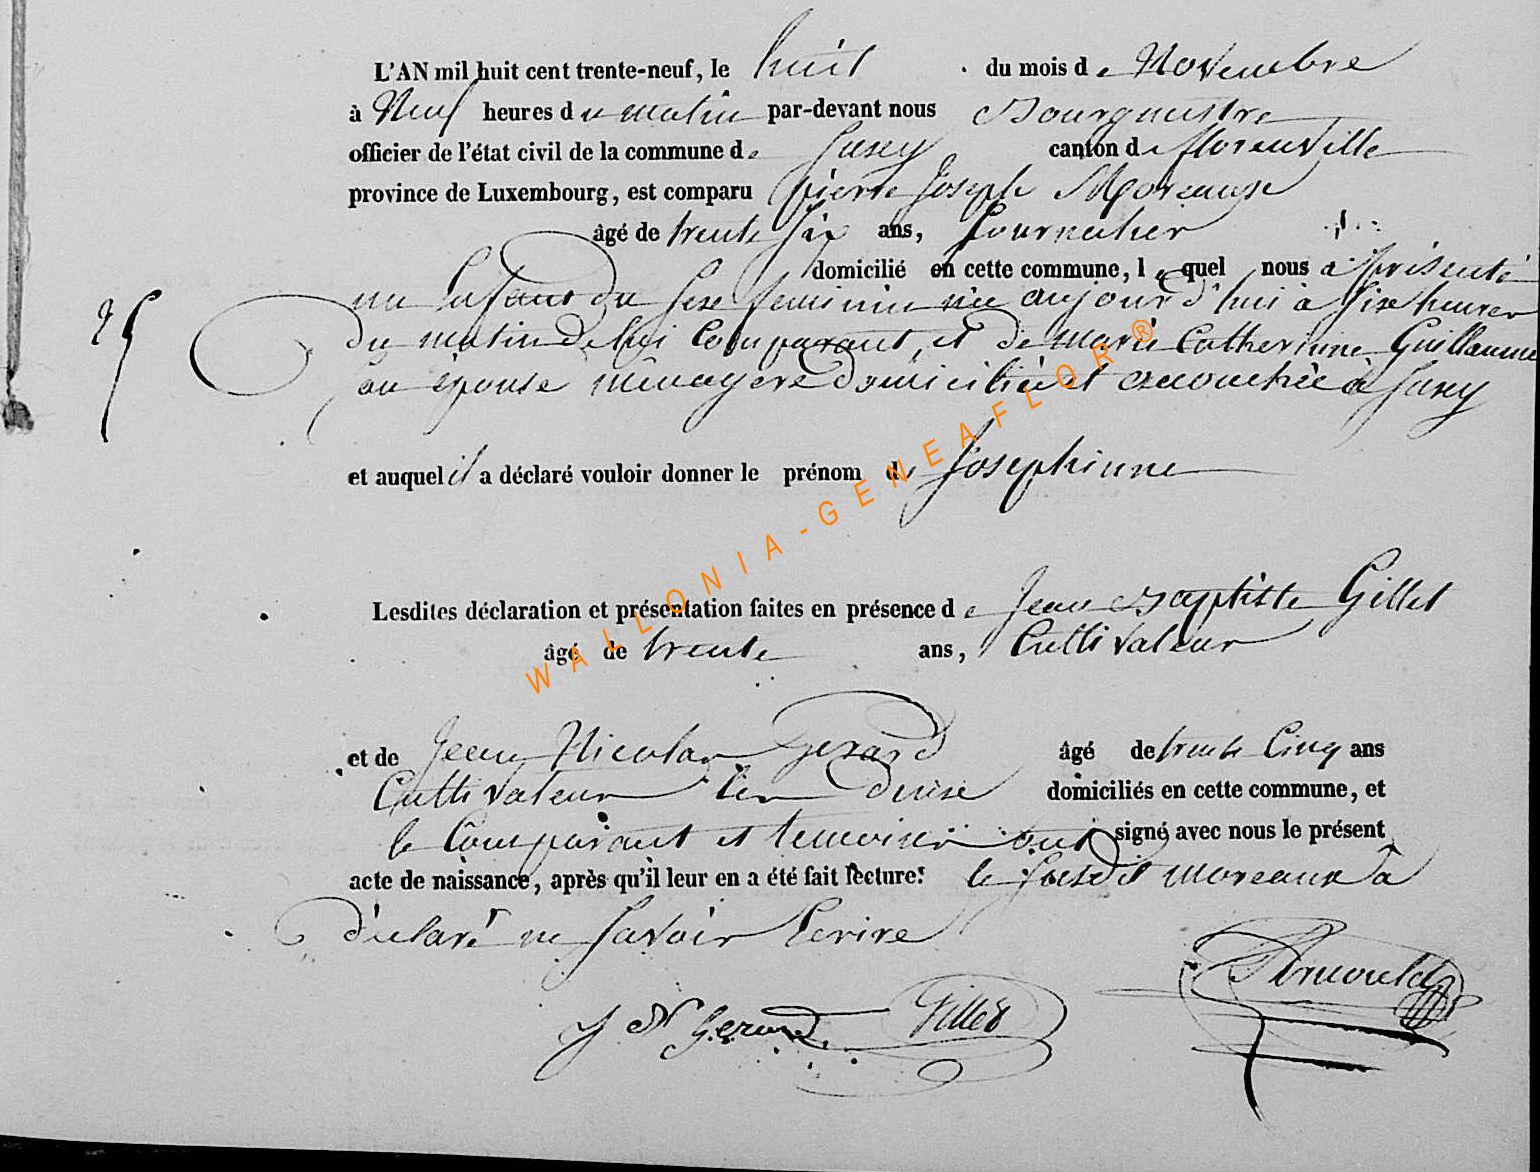 L'AN mil huit cent trente-neuf, le huit du mois de Novembre
à Neuf heures du matin par-devant nous Bourgmestre
officier de l'état civil de la commune de Suxy canton de florenville
province de Luxembourg, est comparu pierre Joseph Moreaux
âgé de trente six ans, Journalier
domicilié en cette commune, lequel nous a présenté
un Enfant du sexe feminin née aujourd'hui à six heures
du matin de lui Comparant, et de marie Catherinne Guillaume
son épouse ménagere domiciliée et accouchée à Suxy
25
et auquel il a déclaré vouloir donner le prénom de Josephinne
Lesdites déclaration et présentation faites en présence de Jean Baptiste Gillet
âgé de trente ans, Cultivateur
et de Jean Nicolas Gerard âgé de trente Cinq ans
Cultivateur domiciliés en cette commune, et
le Comparant et temoins ont signé avec nous le présent
acte de naissance, après qu'il leur en a été fait lecture: le susdit moreaux a
déclaré ne savoir Ecrire
J N Gerard Gillet Arnould
WALLONIA-GENEAFLOR®